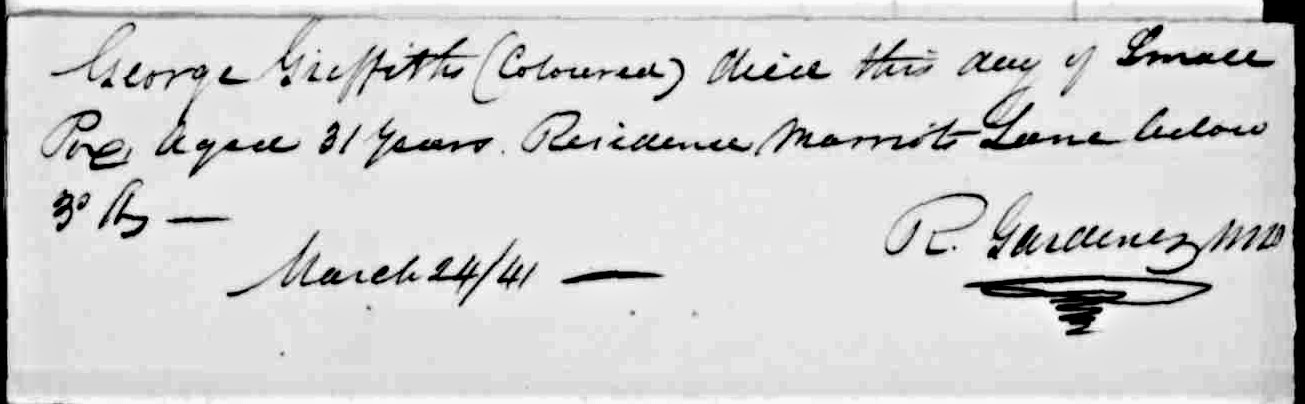 George Griffiths (Coloured) died this day of Small
Pox, Aged 31 Years. Residence Marriots Lane below
3d
March 24/41 —
R. Gardener, MD